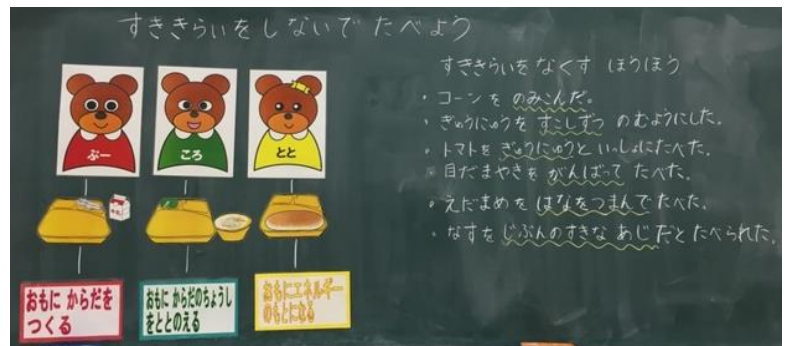 すききらいをしないで たべよう
ぷー
ころ
とと
おもに からだを
つくる
おもに からだのちょうし
をととのえる
おもにエネルギー
のもとになる
すききらいをなくす ほうほう
・コーンを のみこんだ。
・ぎゅうにゅうを すこしずつ のむようにした。
・トマトを ぎゅうにゅうと いっしょにたべた。
・目だまやきを がんばって たべた。
・えだまめを はなをつまんで たべた。
・なすを じぶんのすきな あじだと たべられた。